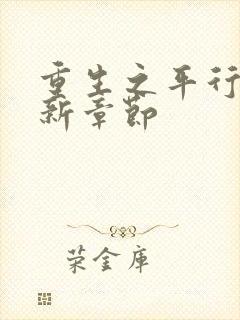 重生之平行
新章节
荣金库